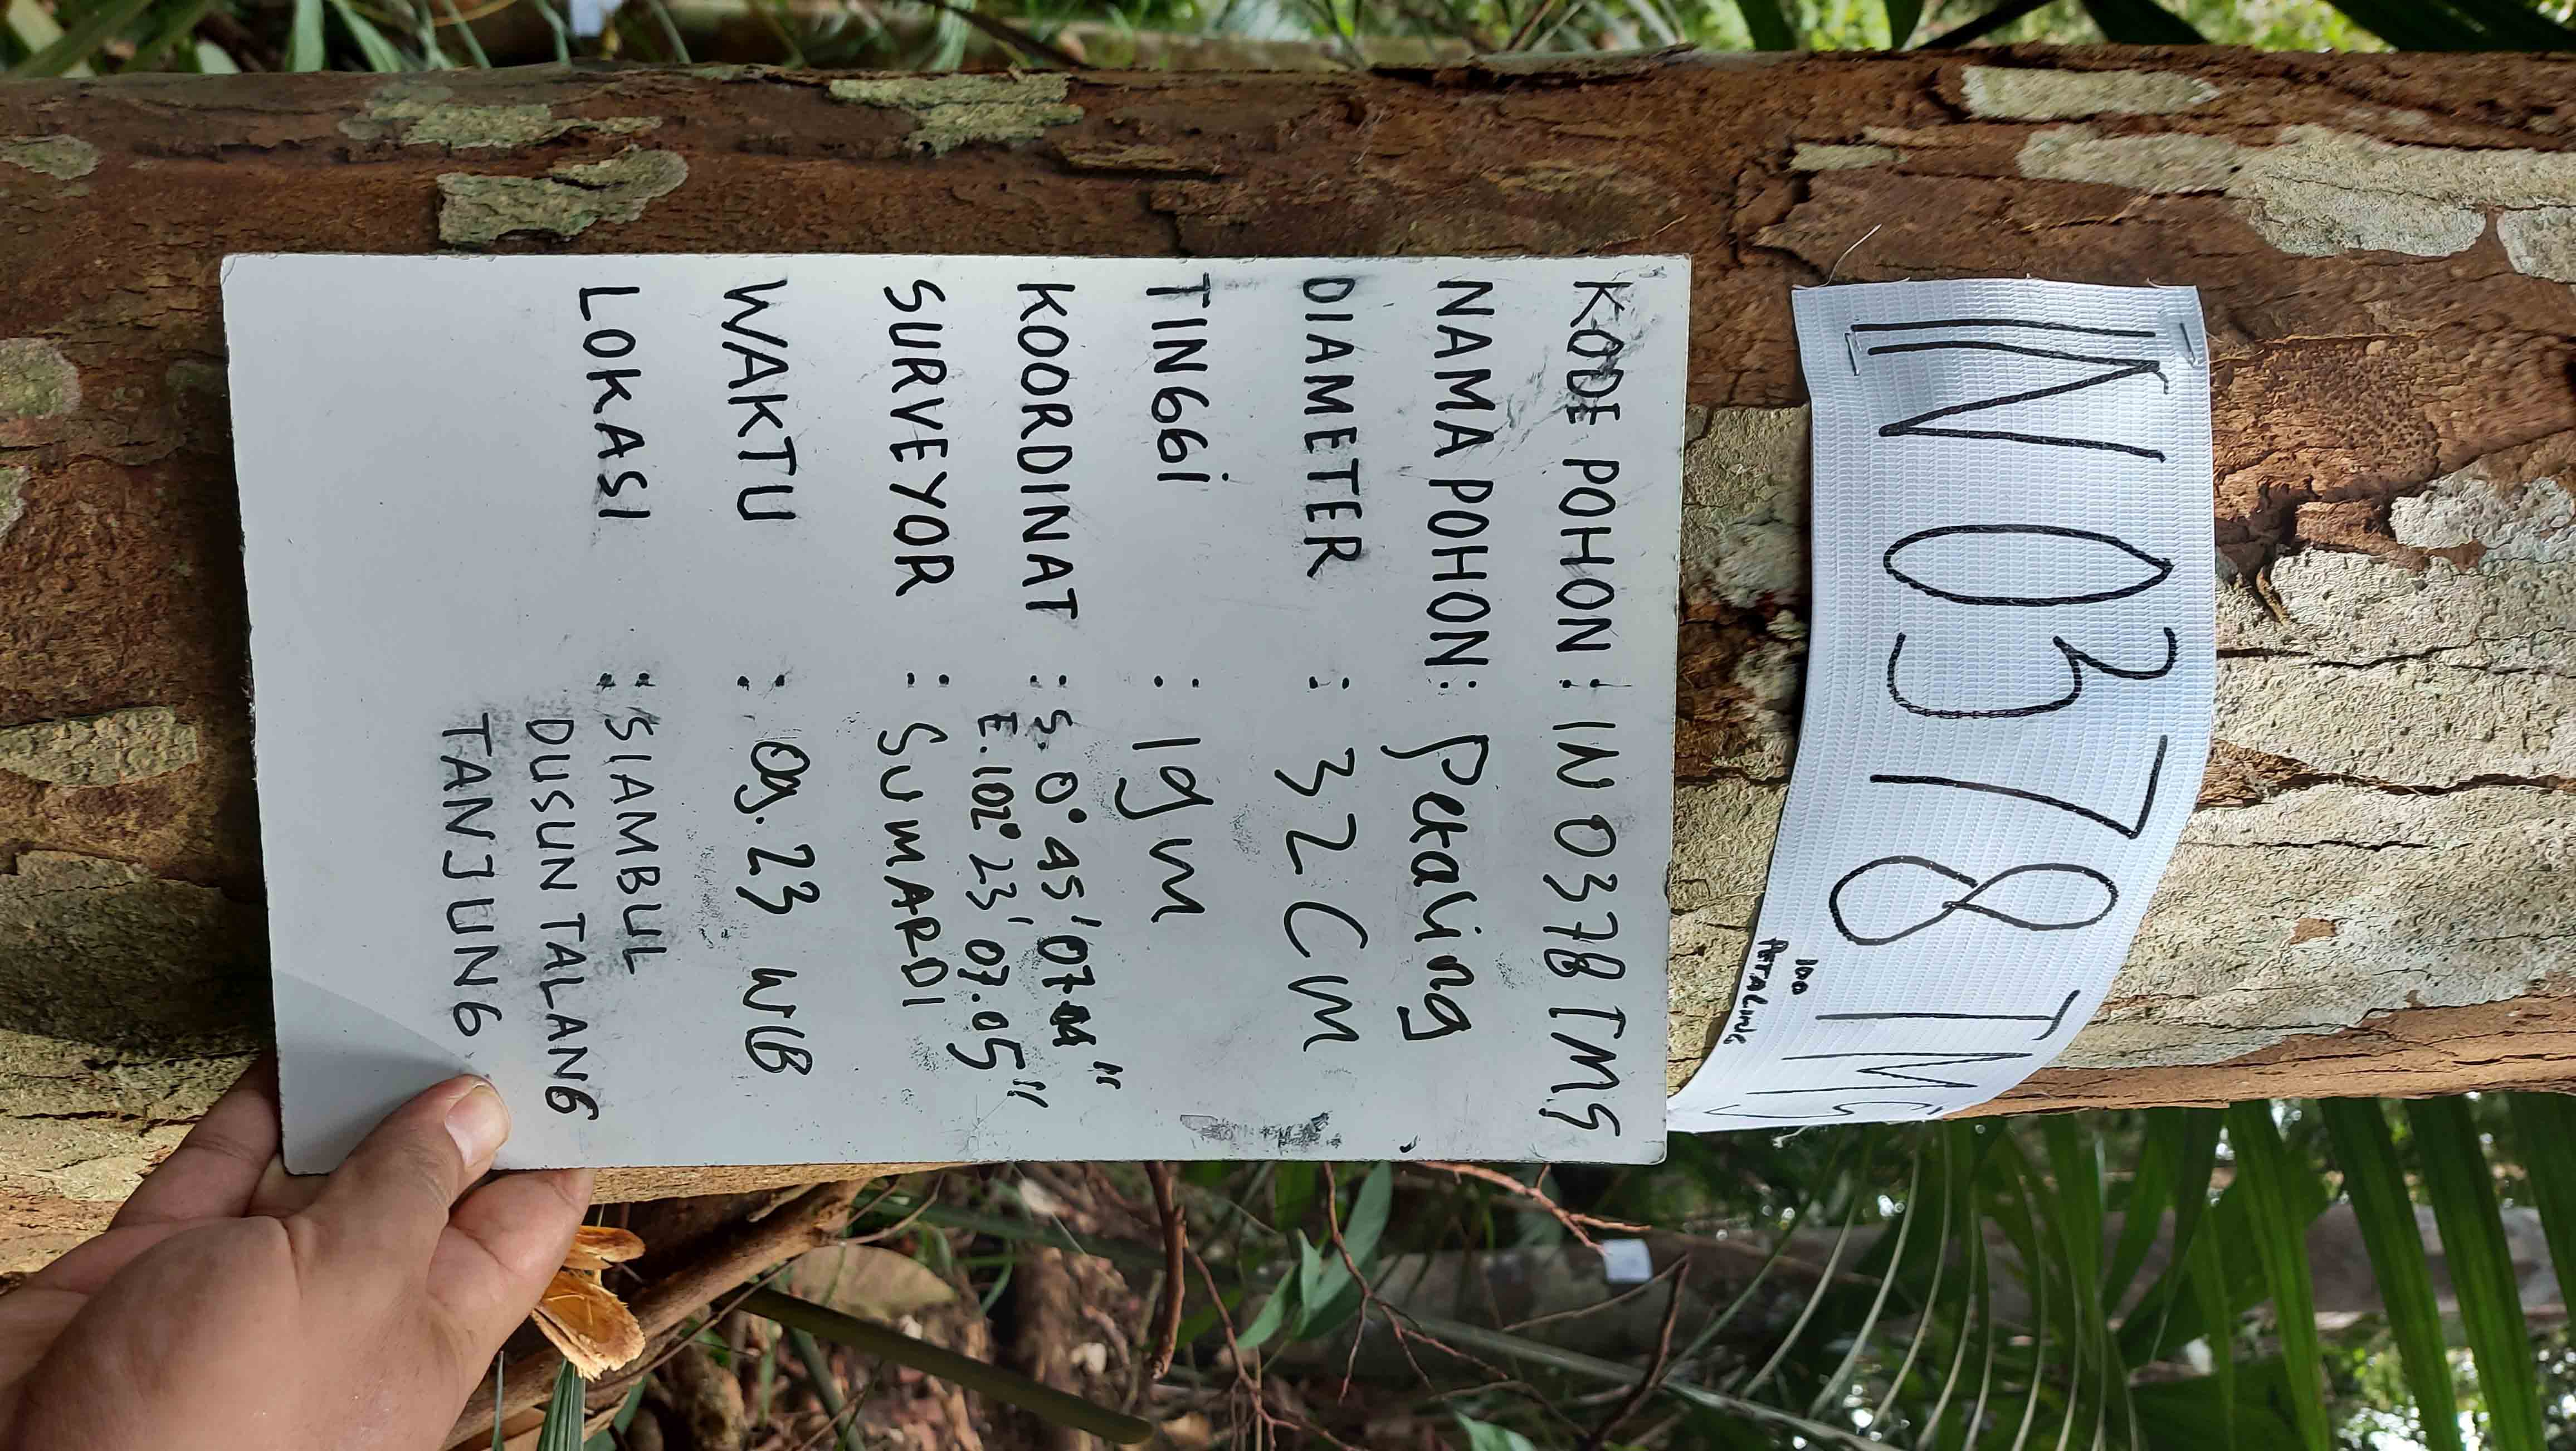 IN 0378 TMS
100
PETALING
KODE POHON : IN 0378 TMS
NAMA POHON : Petaling
DIAMETER : 32 CM
TINGGi : 19 m
KOORDINAT : S. 0° 45' 07.04"
E. 102° 23' 07.05"
SURVEYOR : SUMARDI
WAKTU : 09.23 WIB
LOKASI : SIAMBUL
DUSUN TALANG
TANJUNG